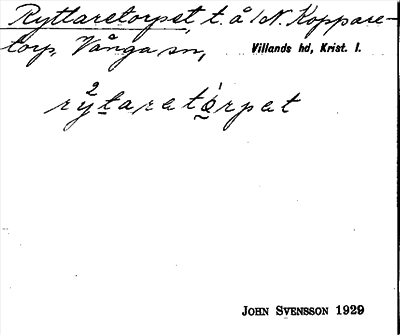 Ryttaretorpet, t. å /N. Koppare-
torp, Vånga sn, Villands hd, Krist. l.
rỳtaretórpet
JOHN SVENSSON 1929